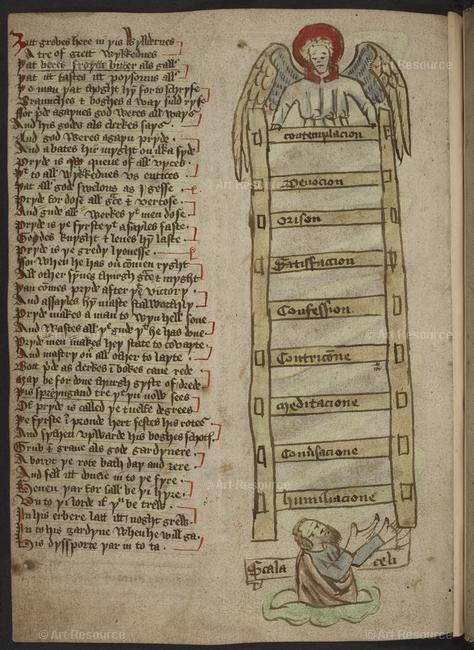 Bot growes here in þis wyldernes
A tre of grett wykkednes
Þat beres froyte bitter als gall
Þat itt tastes itt poysons all
Þe man þat thoght hym forto schryfe
Braunches & boghes a way suld ryfe
ffor pryde agaynes god weres all ways
And his godes als clerkes says
And god weres agayn pryde
And abates hir myght on ilka syde
Pryde is qwene of all vyces
Þat to all wykkednes vs entices
Þat all god as I gesse
Pryde for dose all & vertose
And gude all werkes þat men dose
Pryde is þe fyrste þat asayles faste
Goddes knyght & leues hym laste
Pryde is þe gredy lyonesse
ffor when he has ouercomen ryght
All other synnes thurgh & myght
Þan comes pryde after þe victory
And assayles hym maste stalworthly
Pryde makes a man to wyn hell sone
And wastes all þe gude þat he has done
Pryde men makes hye state to couayte
And mastry on all other to layte
Bott þus as clerkes in bokes cane rede
may be for done thurgh gyfte of drede
Þis spryngand tre þat ȝe now sees
Of pryde is called þe twelfe degrees
Þe fyrste in grounde here festes his rotes
And sythen vpwarde his boghes schotes
Grub & graue als gode gardynere
A bowt þe rote bath day and ȝere
And sell itt in to þe fyre
heuen þar for sall be þi hyre
to þi lorde if þou be trew
In his erbere latt itt noght grew
In to his gardyne when he will ga
His dyssporte þar in to ta
contemplacion
Deuocion
Orison
Satisfaccion
Confession
Contricōne
meditacione
Condicione
humiliacione
Scala celi
© Art Resource
© Art Resource
© Art Resource
© Art Resource
© Art Resource
© Art Resource